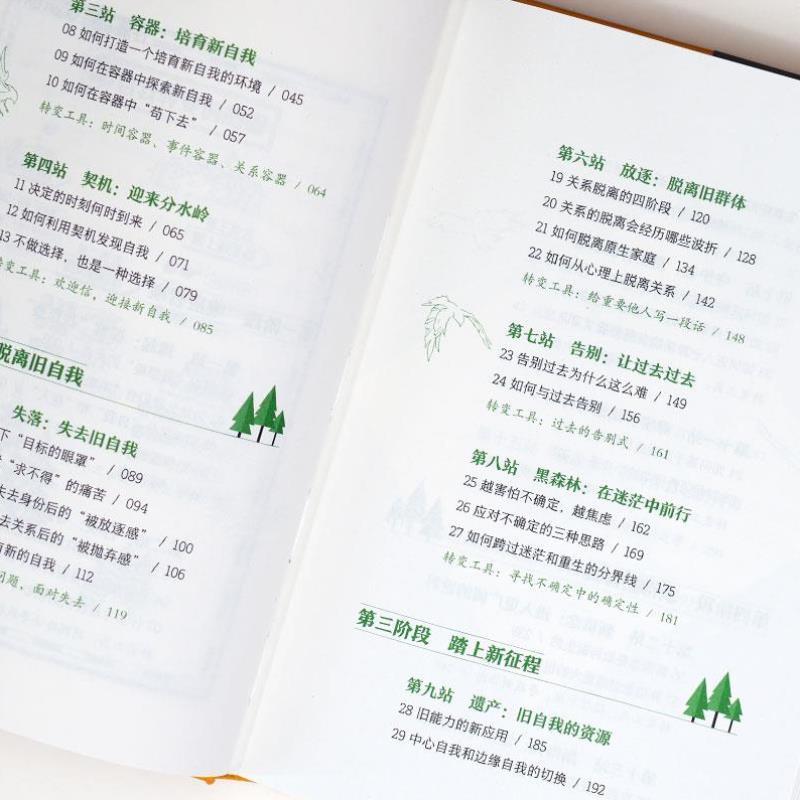 第三站 容器：培育新自我
08 如何打造一个培育新自我的环境 / 045
09 如何在容器中探索新自我 / 052
10 如何在容器中“苟下去” / 057
转变工具：时间容器、事件容器、关系容器 / 064
第四站 契机：迎来分水岭
11 决定的时刻何时到来 / 065
12 如何利用契机发现自我 / 071
13 不做选择，也是一种选择 / 079
转变工具：欢迎信，迎接新自我 / 085
脱离旧自我
失落：失去旧自我
下“目标的眼罩” / 089
“求不得”的痛苦 / 094
失去身份后的“被放逐感” / 100
去关系后的“被抛弃感” / 106
新的自我 / 112
问题，面对失去 / 119
第六站 放逐：脱离旧群体
19 关系脱离的四阶段 / 120
20 关系的脱离会经历哪些波折 / 128
21 如何脱离原生家庭 / 134
22 如何从心理上脱离关系 / 142
转变工具：给重要他人写一段话 / 148
第七站 告别：让过去过去
23 告别过去为什么这么难 / 149
24 如何与过去告别 / 156
转变工具：过去的告别式 / 161
第八站 黑森林：在迷茫中前行
25 越害怕不确定，越焦虑 / 162
26 应对不确定的三种思路 / 169
27 如何跨过迷茫和重生的分界线 / 175
转变工具：寻找不确定中的确定性 / 181
第三阶段 踏上新征程
第九站 遗产：旧自我的资源
28 旧能力的新应用 / 185
29 中心自我和边缘自我的切换 / 192